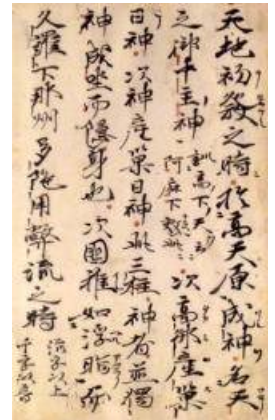 天地初發之時於高天原成神名天
之御中主神訓高下天云阿麻下效此次高御産巢
日神次神産巢日神此三柱神者並獨
神成坐而隱身也次國稚如浮脂而
久羅下那州多陀用弊流之時流字以上十字以音